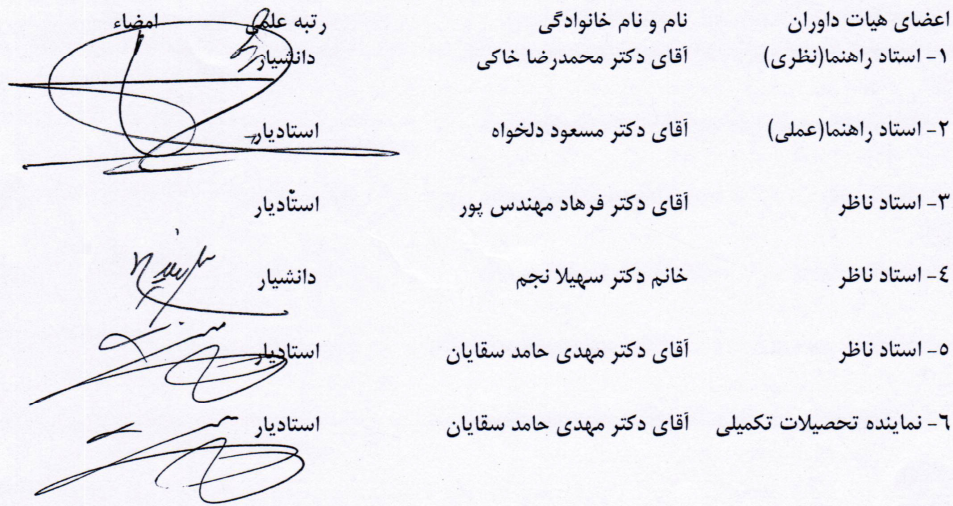 اعضای هیات داوران نام و نام خانوادگی رتبه علمی امضاء
۱- استاد راهنما(نظری) آقای دکتر محمدرضا خاکی دانشیار
۲- استاد راهنما(عملی) آقای دکتر مسعود دلخواه استادیار
۳- استاد ناظر آقای دکتر فرهاد مهندس پور استادیار
٤- استاد ناظر خانم دکتر سهیلا نجم دانشیار
٥- استاد ناظر آقای دکتر مهدی حامد سقایان استادیار
٦- نماینده تحصیلات تکمیلی آقای دکتر مهدی حامد سقایان استادیار